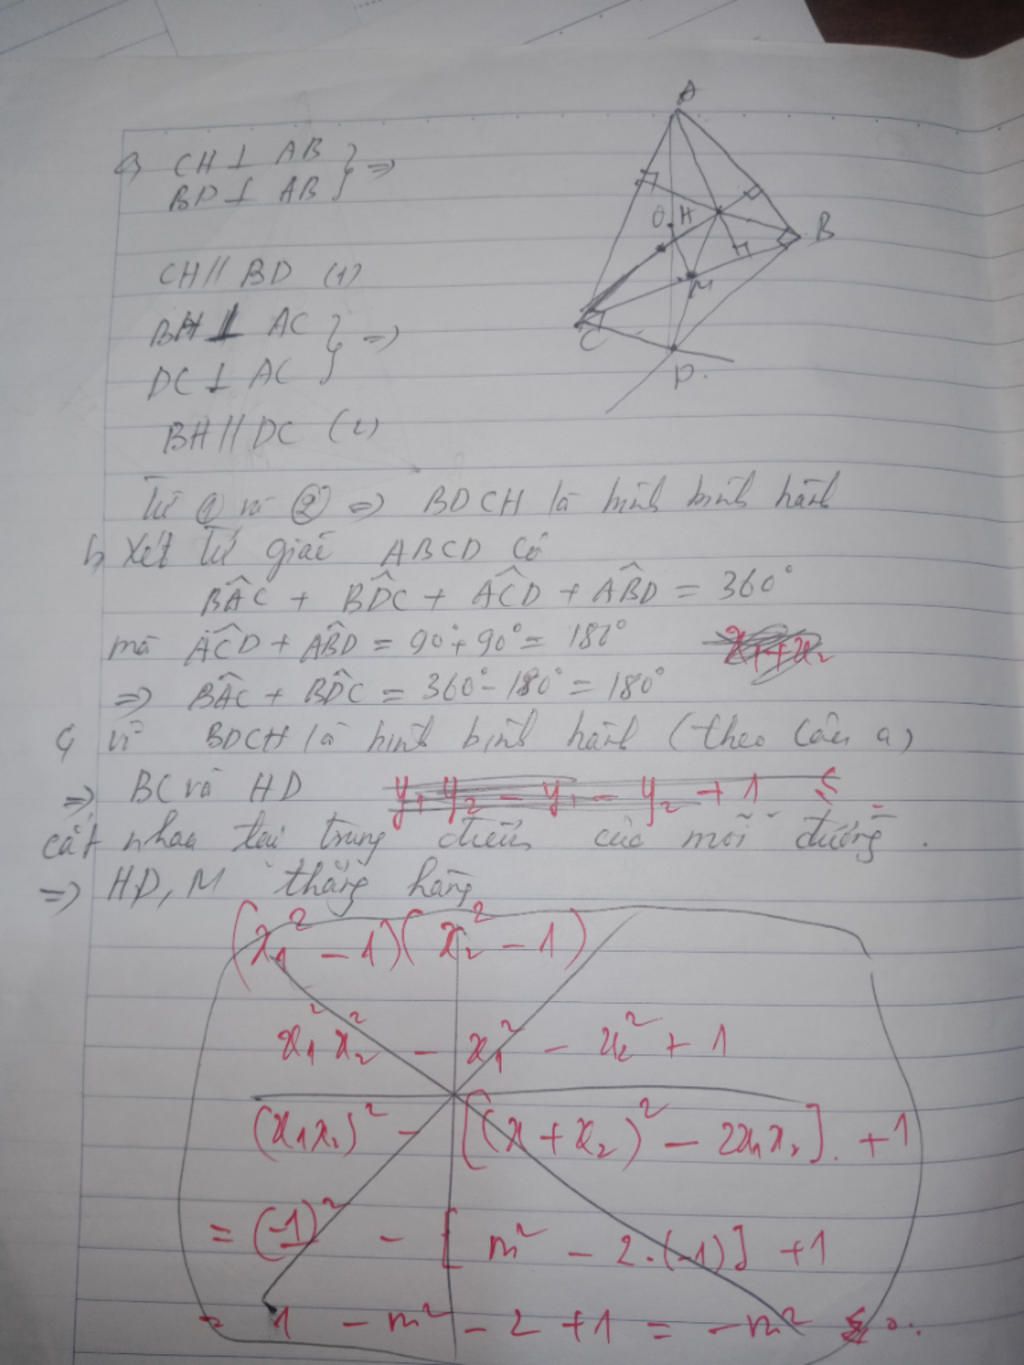 a) CH ⊥ AB
BD ⊥ AB } =>
CH // BD (1)
BH ⊥ AC
DC ⊥ AC } =>
BH // DC (2)
Từ ① và ② => BDCH là hình bình hành
b, Xét tứ giác ABCD có
BÂC + BD̂C + AĈD + AB̂D = 360°
mà AĈD + AB̂D = 90° + 90° = 180°
=> BÂC + BD̂C = 360° - 180° = 180°
x₁ + x₂
c, vì BDCH là hình bình hành (theo câu a)
=> BC và HD
y₁y₂ - y₁ - y₂ + 1 ≤
cắt nhau tại trung điểm của mỗi đường.
=> H, D, M thẳng hàng
(x₁² - 1)(x₂² - 1)
x₁²x₂² - x₁² - x₂² + 1
(x₁x₂)² - [(x + x₂)² - 2x₁x₂]. + 1
= (-1)² - [m² - 2.(-1)] + 1
= 1 - m² - 2 + 1 = -m² ≤ 0.
A
O
H
B
M
C
D.